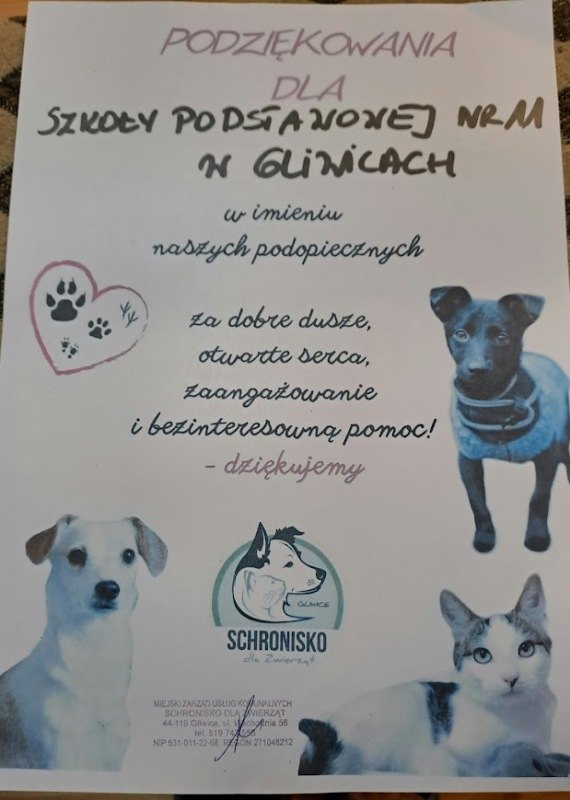 PODZIĘKOWANIA
DLA
SZKOŁY PODSTAWOWEJ NR 11
W GLIWICACH
w imieniu
naszych podopiecznych
za dobre dusze,
otwarte serca,
zaangażowanie
i bezinteresowną pomoc!
- dziękujemy
GLIWICE
SCHRONISKO
dla Zwierząt
MIEJSKI ZARZĄD USŁUG KOMUNALNYCH
SCHRONISKO DLA ZWIERZĄT
44-119 Gliwice, ul. Wschodnia 56
tel. 519 74
NIP 631-011-22-68, REGON 271048212